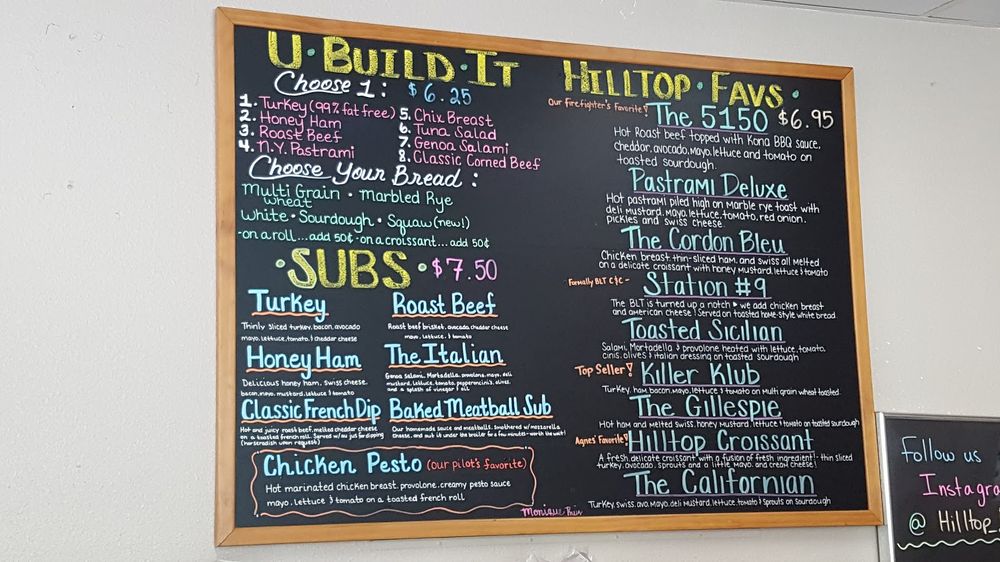 U·Build·It
Choose 1: $6.25
1. Turkey (99% fat free)
2. Honey Ham
3. Roast Beef
4. N.Y. Pastrami
5. Chix Breast
6. Tuna Salad
7. Genoa Salami
8. Classic Corned Beef
Choose Your Bread:
Multi Grain · Marbled Rye
wheat
White · Sourdough · Squaw (new!)
·on a roll...add 50¢ ·on a croissant...add 50¢
·SUBS· $7.50
Turkey
Thinly sliced turkey, bacon, avocado
mayo, lettuce, tomato, & cheddar cheese
Roast Beef
Roast beef brisket, avocado, cheddar cheese
mayo, lettuce, & tomato
Honey Ham
Delicious honey ham, swiss cheese,
bacon, mayo, mustard, lettuce & tomato
The Italian
Genoa salami, Mortadella, provolone, mayo, deli
mustard, lettuce, tomato, pepperoncini's, olives,
and a splash of vinegar & oil
Classic French Dip
Hot and juicy roast beef, melted cheddar cheese
on a toasted french roll. Served w/au jus for dipping
(horseradish upon request)
Baked Meatball Sub
Our homemade sauce and meatballs, smothered w/mozzarella
cheese, and put it under the broiler for a few minutes-worth the wait!
Chicken Pesto (our pilot's favorite)
Hot marinated chicken breast, provolone, creamy pesto sauce
mayo, lettuce & tomato on a toasted french roll
Monique
Hilltop·Favs·
Our Firefighter's Favorite! The 5150 $6.95
Hot Roast beef topped with Kona BBQ sauce,
cheddar, avocado, mayo, lettuce and tomato on
toasted sourdough.
Pastrami Deluxe
Hot pastrami piled high on marble rye toast with
deli mustard, mayo, lettuce, tomato, red onion,
pickles and swiss cheese
The Cordon Bleu
Chicken breast, thin-sliced ham, and swiss all melted
on a delicate croissant with honey mustard, lettuce & tomato
Formally BLT C&C - Station #9
The BLT is turned up a notch we add chicken breast
and american cheese! Served on toasted home-style white bread
Toasted Sicilian
Salami, Mortadella & provolone heated with lettuce, tomato,
cinis, olives & italian dressing on toasted sourdough
Top Seller! Killer Klub
Turkey, ham, bacon, mayo, lettuce & tomato on Multi grain wheat toasted
The Gillespie
Hot ham and melted swiss, honey mustard, lettuce & tomato on toasted sourdough
Agnes' Favorite! Hilltop Croissant
A fresh, delicate croissant with a fusion of fresh ingredient!- thin sliced
turkey, avocado, sprouts and a little mayo, and cream cheese!
The Californian
Turkey, swiss, avo, mayo, deli mustard, lettuce, tomato & sprouts on Sourdough
Follow us
Instagra
@ Hilltop_